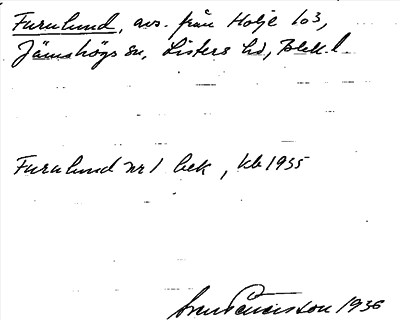 Furulund, avs. från Holje 103,
Jämshögs sn, Listers hd, Blek. l.
Furulund nr 1 bek, kb 1935
1936